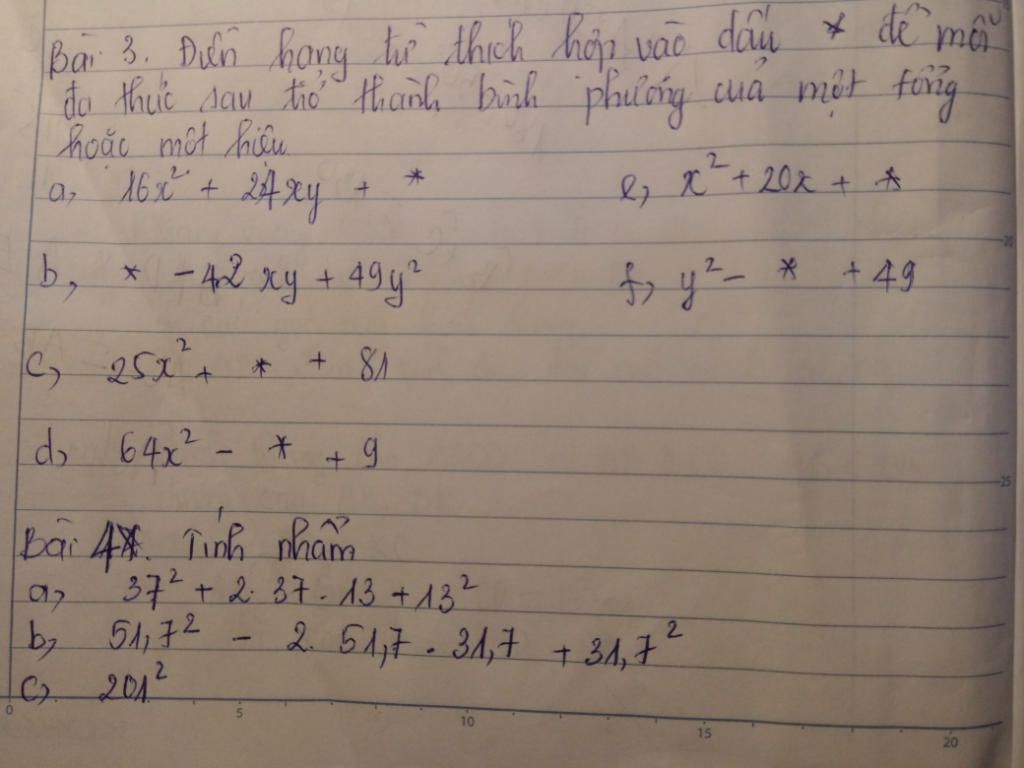 Bài 3. Điền hạng tử thích hợp vào dấu * để mỗi
đa thức sau trở thành bình phương của một tổng
hoặc một hiệu
a, 16x² + 24xy + *
e, x² + 20x + *
b, * - 42xy + 49y²
f, y² - * + 49
c, 25x² + * + 81
d, 64x² - * + 9
Bài 4*. Tính nhẩm
a, 37² + 2. 37 . 13 + 13²
b, 51,7² - 2. 51,7 . 31,7 + 31,7²
c, 201²
0 5 10 15 20
20
25